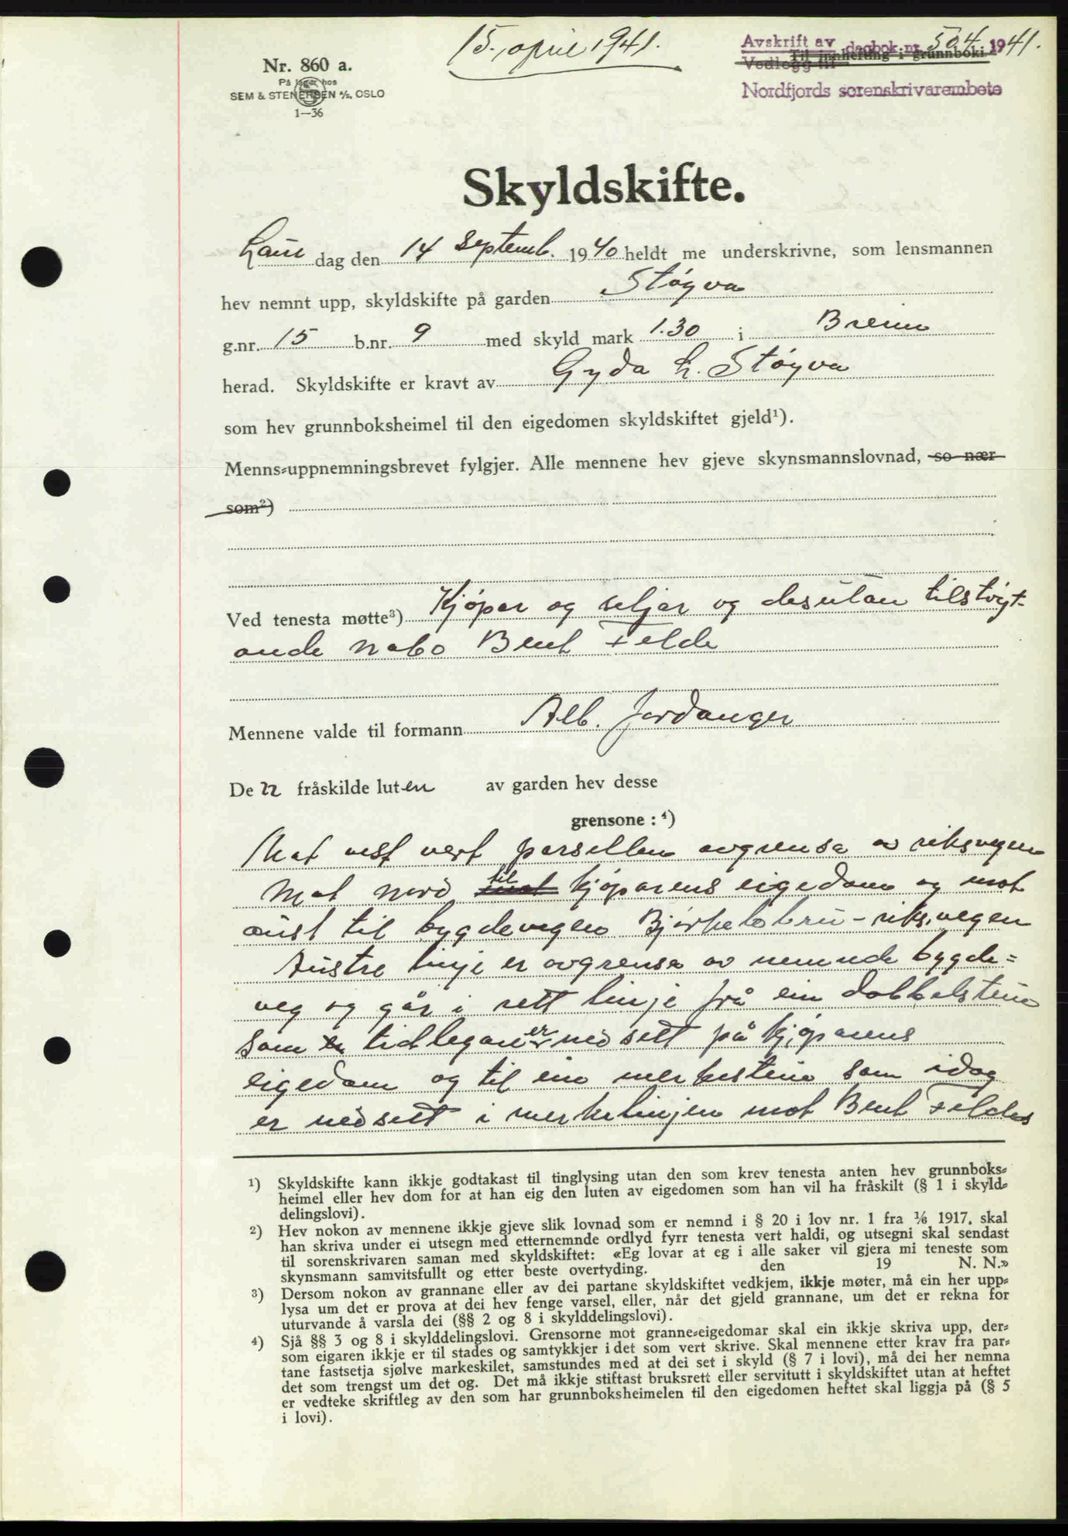 15. april 1941.
Avskrift av dagbok nr. 504 1941.
Vedlegg til Til innhefting i grunnboki
Nordfjords sorenskrivarembete
Nr. 860 a.
På lager hos
SEM & STENERSEN A/S, OSLO
1—36
Skyldskifte.
Laur dag den 14 septemb. 1940 heldt me underskrivne, som lensmannen
hev nemnt upp, skyldskifte på garden Støyva
g.nr. 15 b.nr. 9 med skyld mark 1.30 i Breim
herad. Skyldskifte er kravt av Gyda L. Støyva
som hev grunnboksheimel til den eigedomen skyldskiftet gjeld¹).
Menns-uppnemningsbrevet fylgjer. Alle mennene hev gjeve skynsmannslovnad, so nær
som²)
Ved tenesta møtte³) Kjøpar og seljar og desutan tilstøyt-
ande nabo Bent Felde
Mennene valde til formann Alb. Jordanger
De n fråskilde luten av garden hev desse
grensone : ⁴)
Mot vest vert parsellen avgrensa av riksvegen
Mot nord til kjøparens eigedom og mot
aust til bygdevegen Bjørkelobru - riksvegen
Austre linje er avgrensa av nemnde bygde=
veg og går i rett linje frå ein dobbelstein
som tidlegare er nedsett på kjøparens
eigedom og til ein merkestein som idag
er nedsett i merkelinjen mot Bent Feldes
¹) Skyldskifte kann ikkje godtakast til tinglysing utan den som krev tenesta anten hev grunnboks-
heimel eller hev dom for at han eig den luten av eigedomen som han vil ha fråskilt (§ 1 i skyld-
delingslovi).
²) Hev nokon av mennene ikkje gjeve slik lovnad som er nemnd i § 20 i lov nr. 1 fra 1/6 1917, skal
han skriva under ei utsegn med etternemnde ordlyd fyrr tenesta vert haldi, og utsegni skal sendast
til sorenskrivaren saman med skyldskiftet: «Eg lovar at eg i alle saker vil gjera mi teneste som
skynsmann samvitsfullt og etter beste overtyding. den 19 N. N.»
³) Dersom nokon av grannane eller av dei partane skyldskiftet vedkjem, ikkje møter, må ein her upp-
lysa um det er prova at dei hev fenge varsel, eller, når det gjeld grannane, um det er rekna for
uturvande å varsla dei (§§ 2 og 8 i skylddelingslovi).
⁴) Sjå §§ 3 og 8 i skylddelingslovi. Grensorne mot granne-eigedomar skal ein ikkje skriva upp, der-
som eigaren ikkje er til stades og samtykkjer i det som vert skrive. Skal mennene etter krav fra par-
tane fastsetja sjølve markeskilet, samstundes med at dei set i skyld (§ 7 i lovi), må dei her nemna
det som trengst um det og. Det må ikkje stiftast bruksrett eller servitutt i skyldskiftet utan at heftet
er vedteke skriftleg av den som har grunnboksheimelen til den eigedomen heftet skal liggja på (§ 5
i lovi).